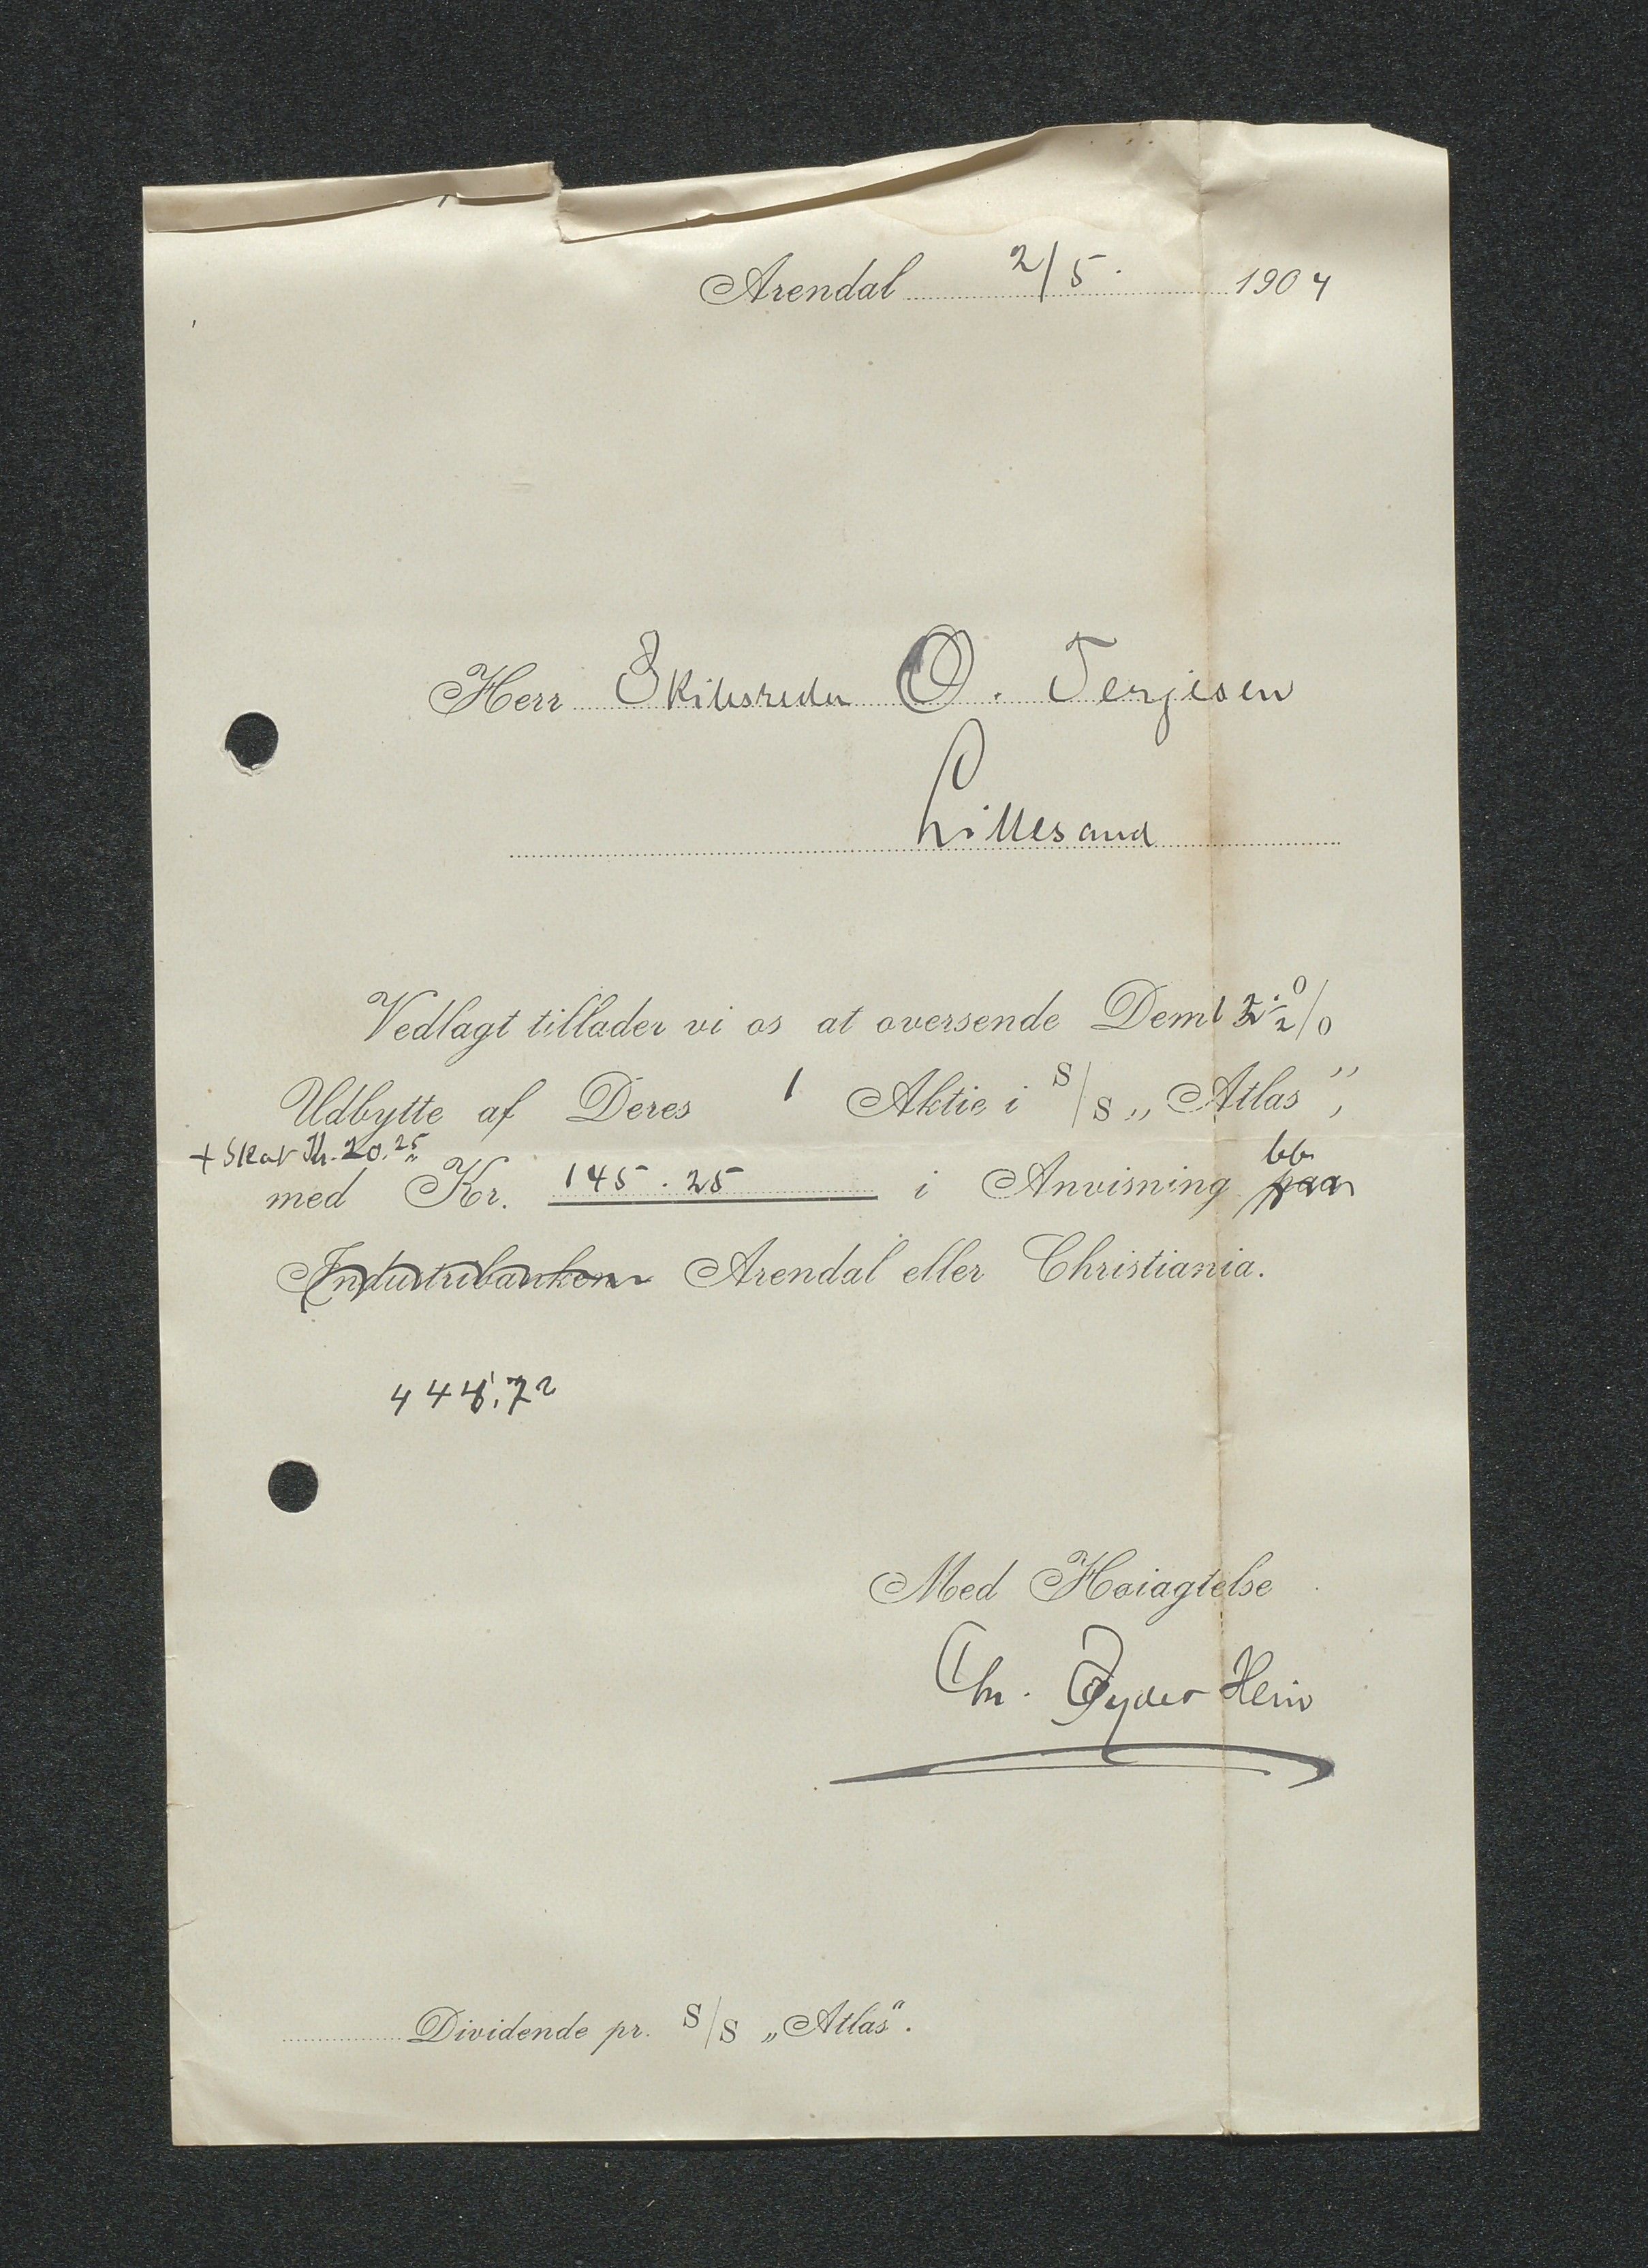 Arendal 2/5. 1904
Herr Skibsreder O. Terjesen
Lillesand
Vedlagt tillader vi os at oversende Dem
Udbytte af Deres 1 Aktie i S/S „Atlas”,
+ Skat Kr. 20.25
med Kr. 145.25 i Anvisning paa
Industribanken Arendal eller Christiania.
Med Høiagtelse
Chr. Hein
Dividende pr. S/S „Atlas“.